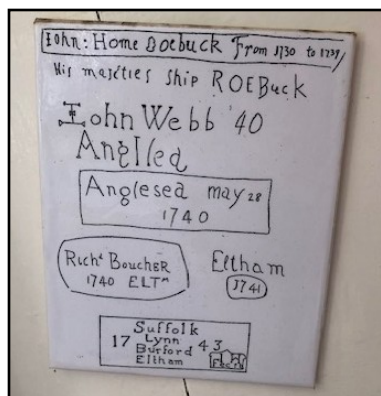 Iohn: Home Doebuck From J730 to 1739
His majeties Ship ROEBuck
Iohn Webb '40
Anglled
Anglesea may 28
1740
Richd BoucHER
1740 ELTm
Eltham
J741
Suffolk
17 Lynn 43
Burford
Eltham